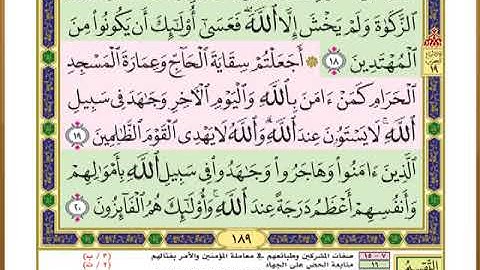 ٱلزَّكَوٰةَ وَلَمْ يَخْشَ إِلَّا ٱللَّهَ ۖ فَعَسَىٰٓ أُو۟لَٰٓئِكَ أَن يَكُونُوا۟ مِنَ
ٱلْمُهْتَدِينَ ١٨ ۞ أَجَعَلْتُمْ سِقَايَةَ ٱلْحَآجِّ وَعِمَارَةَ ٱلْمَسْجِدِ
ٱلْحَرَامِ كَمَنْ ءَامَنَ بِٱللَّهِ وَٱلْيَوْمِ ٱلْءَاخِرِ وَجَٰهَدَ فِى سَبِيلِ
ٱللَّهِ ۚ لَا يَسْتَوُۥنَ عِندَ ٱللَّهِ ۗ وَٱللَّهُ لَا يَهْدِى ٱلْقَوْمَ ٱلظَّٰلِمِينَ ١٩
ٱلَّذِينَ ءَامَنُوا۟ وَهَاجَرُوا۟ وَجَٰهَدُوا۟ فِى سَبِيلِ ٱللَّهِ بِأَمْوَٰلِهِمْ
وَأَنفُسِهِمْ أَعْظَمُ دَرَجَةً عِندَ ٱللَّهِ ۚ وَأُو۟لَٰٓئِكَ هُمُ ٱلْفَآئِزُونَ ٢٠
١٨٩
٧ - ١٥ صفات المشركين وطبائعهم في معاملة المؤمنين والأمر بقتالهم
١٦ متابعة الحض على الجهاد